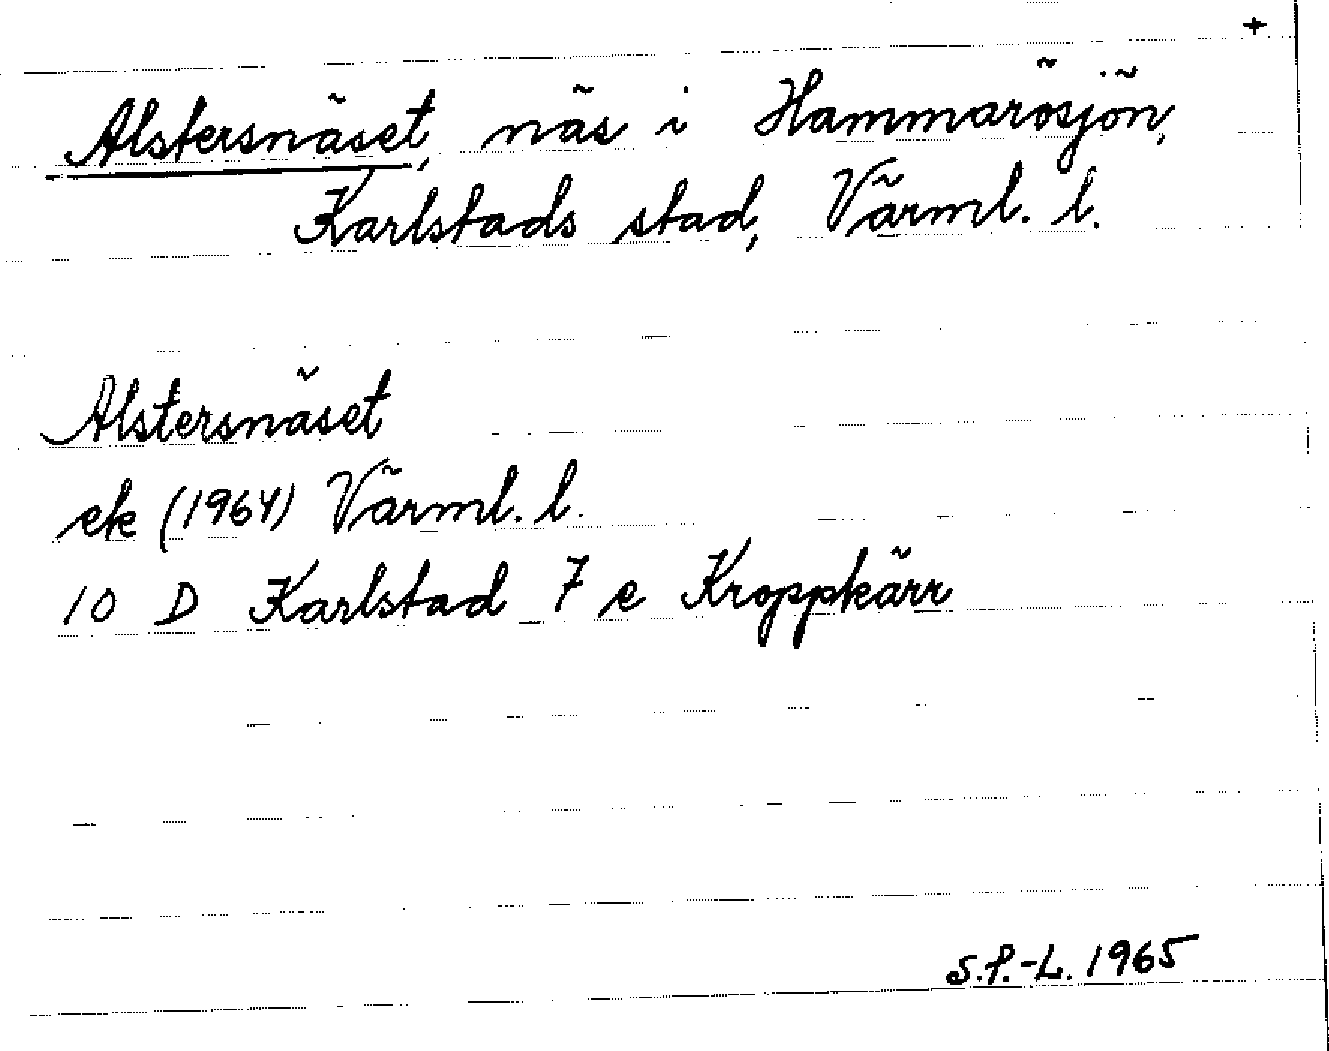 +
Alstersnäset, näs i Hammarösjön,
Karlstads stad, Värml. l.
Alstersnäset
ek (1964) Värml. l.
10 D Karlstad 7 e Kroppkärr
S.P.-L. 1965